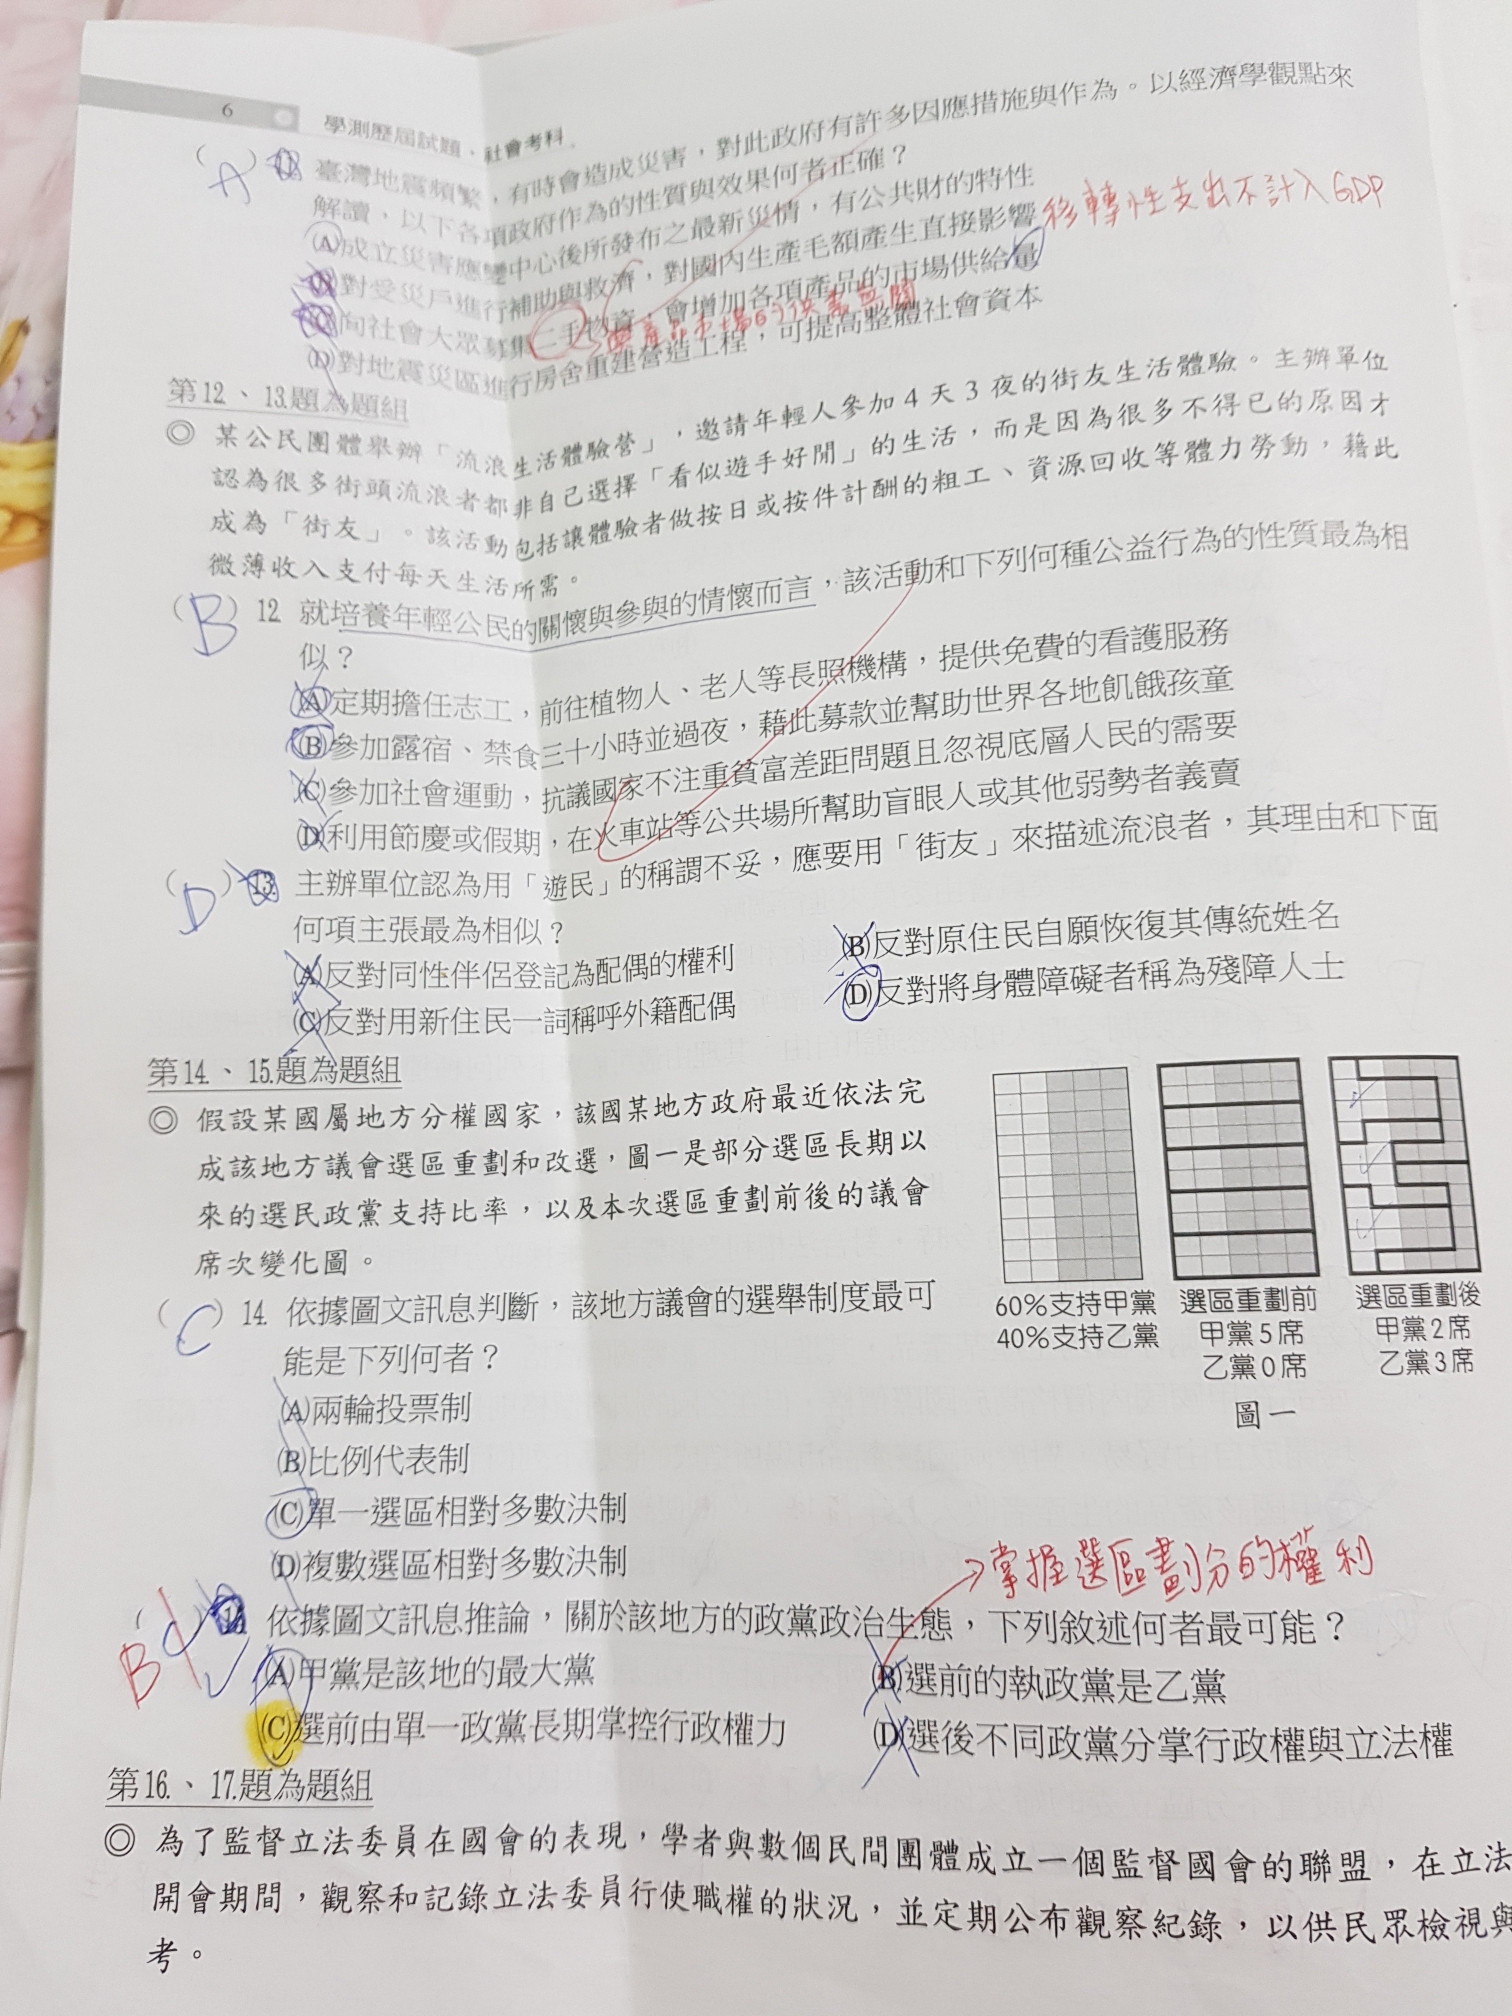 6
學測歷屆試題．社會考科
(A) 11. 臺灣地震頻繁，有時會造成災害，對此政府有許多因應措施與作為。以經濟學觀點來
解讀，以下各項政府作為的性質與效果何者正確？
(A)成立災害應變中心後所發布之最新災情，有公共財的特性
(B)對受災戶進行補助與救濟，對國內生產毛額產生直接影響 移轉性支出不計入GDP
(C)向社會大眾募集二手物資，會增加各項產品的市場供給量
(D)對地震災區進行房舍重建營造工程，可提高整體社會資本
第12.、13.題為題組
◎ 某公民團體舉辦「流浪生活體驗營」，邀請年輕人參加4天3夜的街友生活體驗。主辦單位
認為很多街頭流浪者都非自己選擇「看似遊手好閒」的生活，而是因為很多不得已的原因才
成為「街友」。該活動包括讓體驗者做按日或按件計酬的粗工、資源回收等體力勞動，藉此
微薄收入支付每天生活所需。
(B) 12. 就培養年輕公民的關懷與參與的情懷而言，該活動和下列何種公益行為的性質最為相
似？
(A)定期擔任志工，前往植物人、老人等長照機構，提供免費的看護服務
(B)參加露宿、禁食三十小時並過夜，藉此募款並幫助世界各地飢餓孩童
(C)參加社會運動，抗議國家不注重貧富差距問題且忽視底層人民的需要
(D)利用節慶或假期，在火車站等公共場所幫助盲眼人或其他弱勢者義賣
(D) 13. 主辦單位認為用「遊民」的稱謂不妥，應要用「街友」來描述流浪者，其理由和下面
何項主張最為相似？
(A)反對同性伴侶登記為配偶的權利 (B)反對原住民自願恢復其傳統姓名
(C)反對用新住民一詞稱呼外籍配偶 (D)反對將身體障礙者稱為殘障人士
第14.、15.題為題組
◎ 假設某國屬地方分權國家，該國某地方政府最近依法完
成該地方議會選區重劃和改選，圖一是部分選區長期以
來的選民政黨支持比率，以及本次選區重劃前後的議會
席次變化圖。
60%支持甲黨
40%支持乙黨
選區重劃前
甲黨5席
乙黨0席
選區重劃後
甲黨2席
乙黨3席
圖一
(C) 14. 依據圖文訊息判斷，該地方議會的選舉制度最可
能是下列何者？
(A)兩輪投票制
(B)比例代表制
(C)單一選區相對多數決制
(D)複數選區相對多數決制
→掌握選區劃分的權利
B
( ) 15. 依據圖文訊息推論，關於該地方的政黨政治生態，下列敘述何者最可能？
(A)甲黨是該地的最大黨 (B)選前的執政黨是乙黨
(C)選前由單一政黨長期掌控行政權力 (D)選後不同政黨分掌行政權與立法權
第16.、17.題為題組
◎ 為了監督立法委員在國會的表現，學者與數個民間團體成立一個監督國會的聯盟，在立法
開會期間，觀察和記錄立法委員行使職權的狀況，並定期公布觀察紀錄，以供民眾檢視與
考。